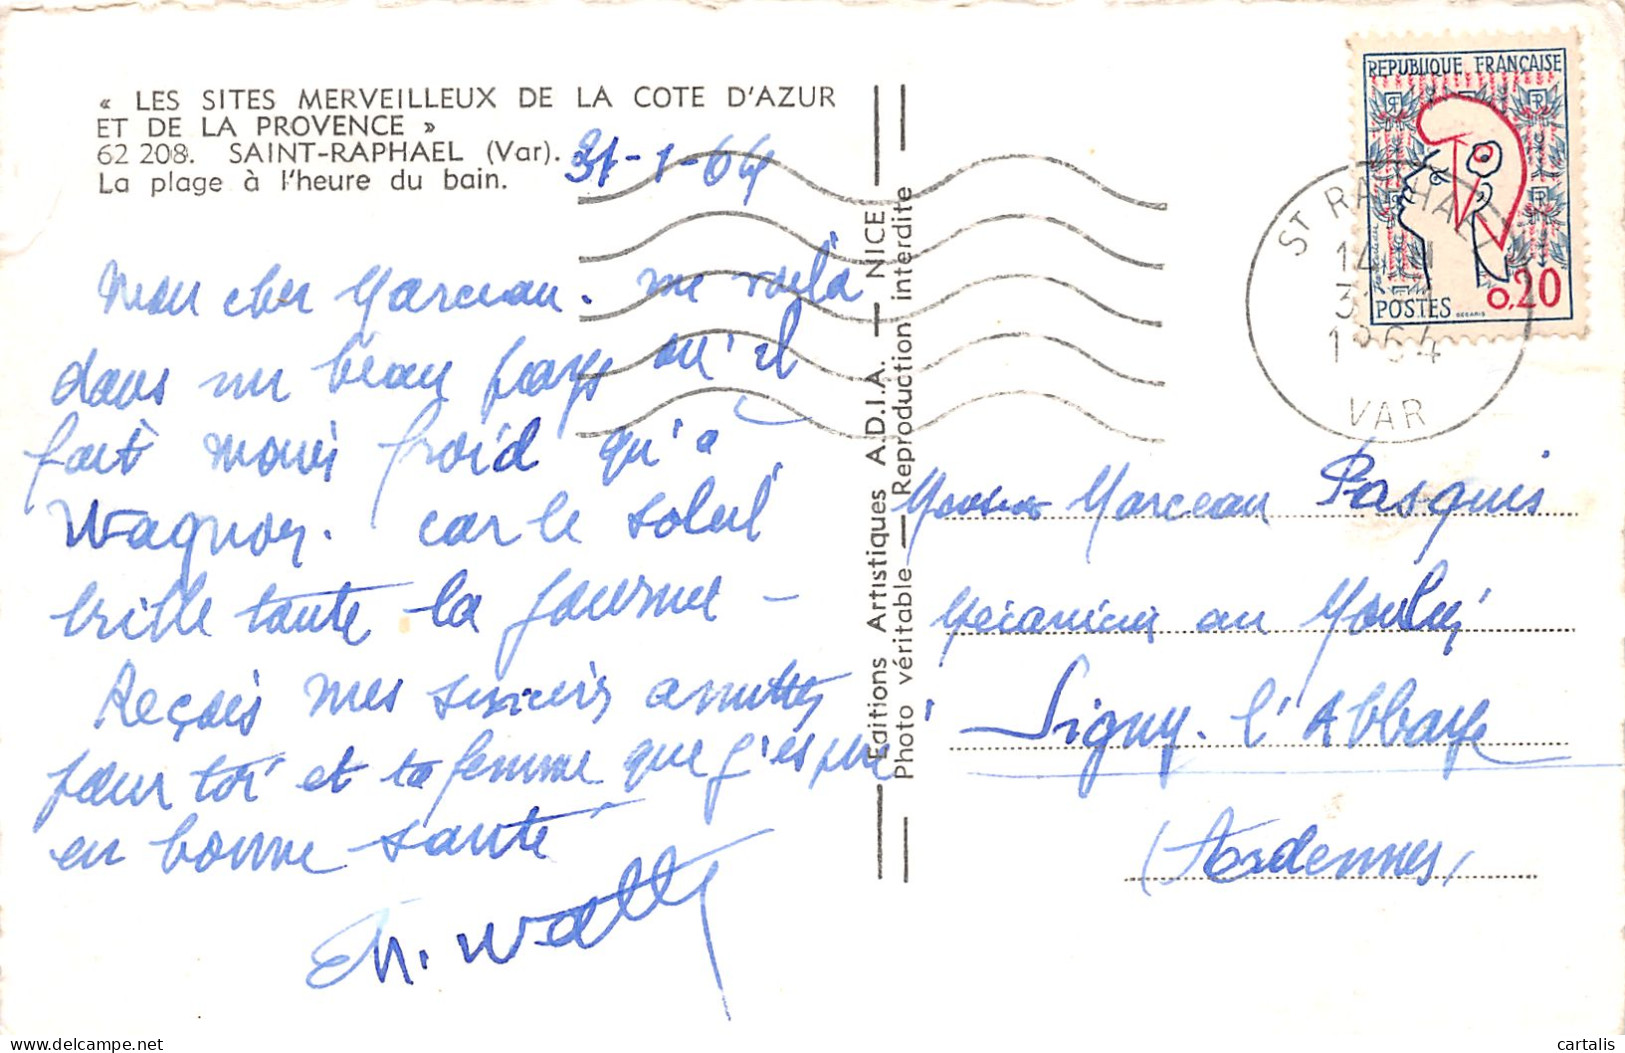 « LES SITES MERVEILLEUX DE LA COTE D'AZUR
ET DE LA PROVENCE »
62 208. SAINT-RAPHAEL (Var).
La plage à l'heure du bain.
31-1-64
Mon cher Marceau. me voilà
dans un beau pays où il
fait moins froid qu'à
Wagnon. car le soleil
brille toute la journée -
Reçois mes sincères amitiés
pour toi et ta femme que j'espère
en bonne santé
Editions Artistiques A.D.I.A. — NICE
Photo véritable — Reproduction interdite
REPUBLIQUE FRANÇAISE
POSTES
0,20
DECARIS
ST RAPHAEL
1964
VAR
Monsieur Marceau Pasquis
Mécanicien au Moulin
Signy-l'Abbaye
(Ardennes)
cartalis